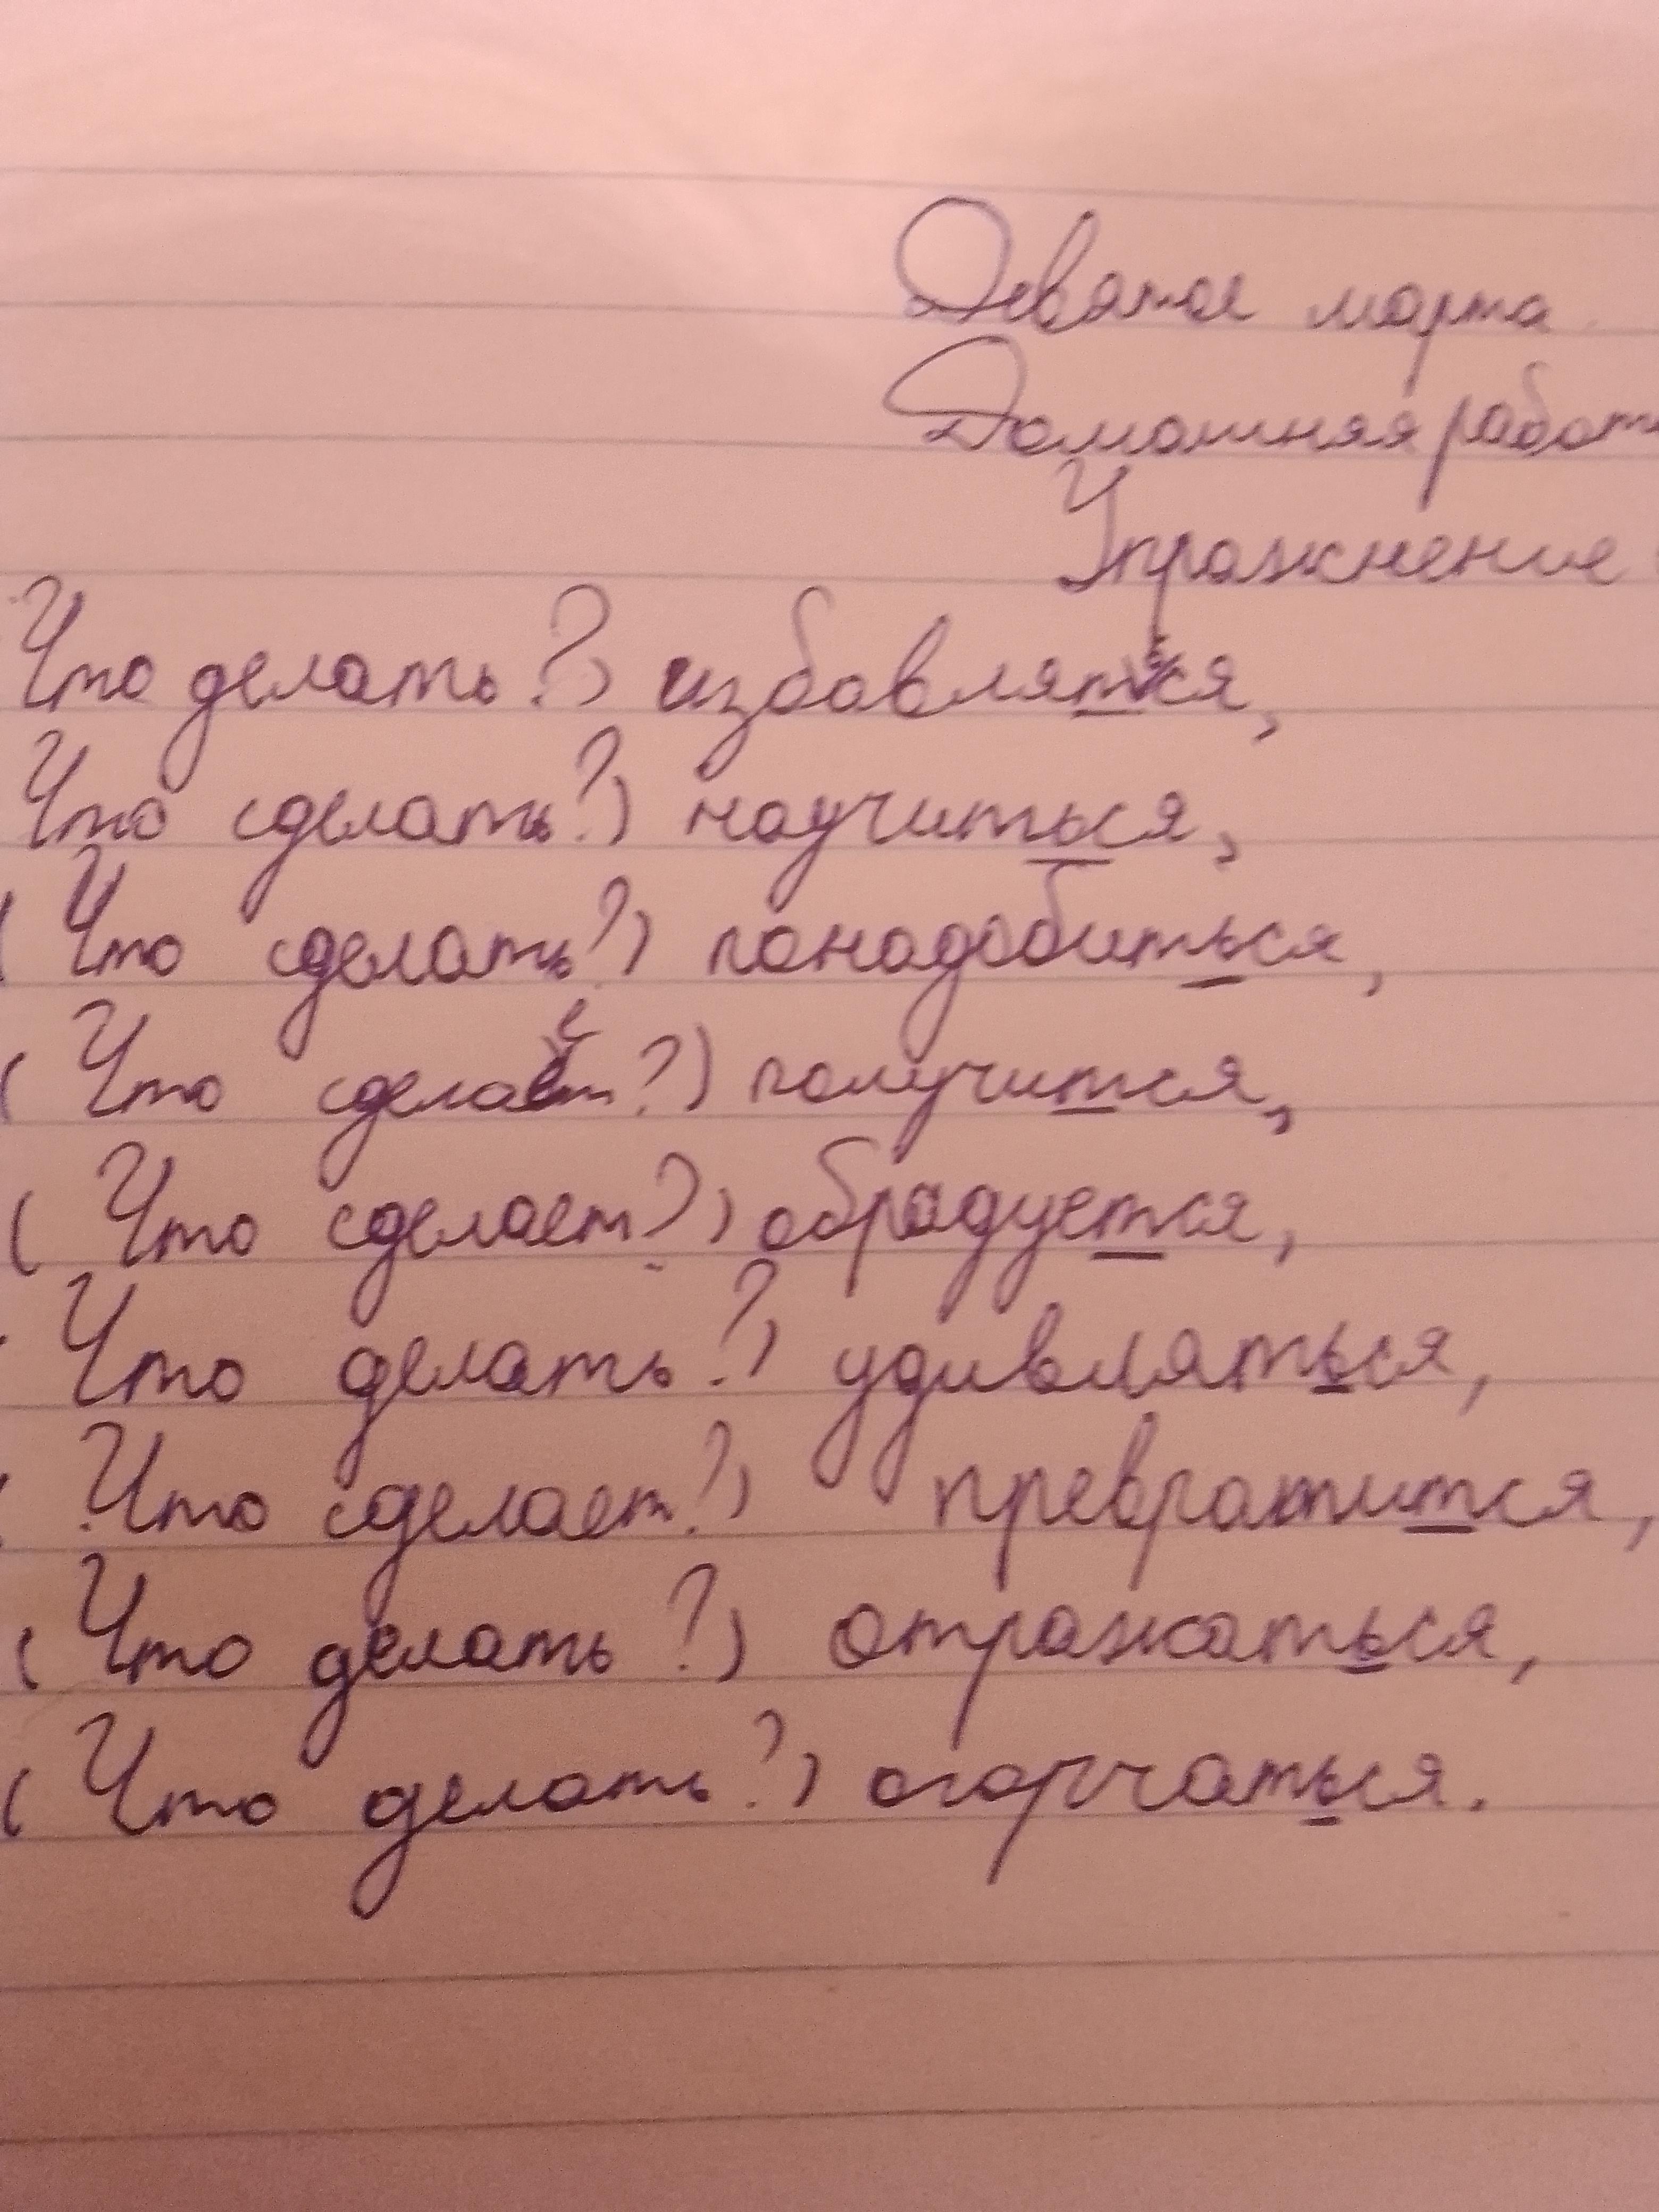 Девятое марта
Домашняя работа
Упражнение
Что делать?) избавляться,
Что сделать?) научиться,
(Что сделать?) понадобиться,
(Что сделает?) получится,
(Что сделает?) обрадуется,
Что делать?) удивляться,
(Что сделает?) превратится,
(Что делать?) отражаться,
(Что делать?) огорчаться.